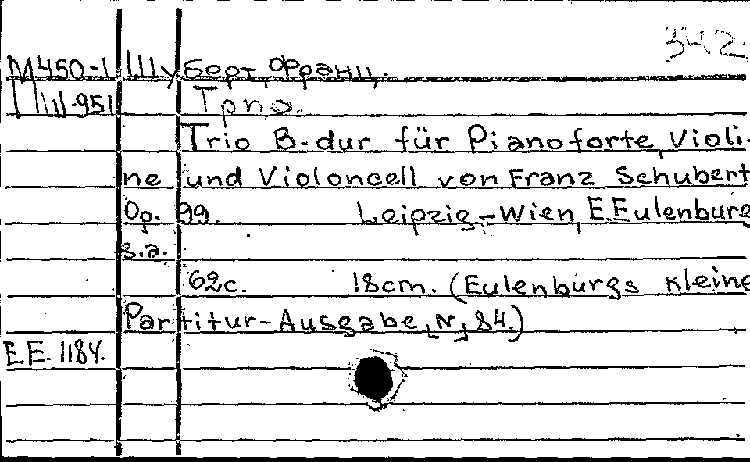 342
М450-1 Шуберт, Франц.
Пш-951 Трио.
Trio B-dur für Pianoforte, Violi-
ne und Violoncell von Franz Schubert
Op. 99. Leipzig-Wien, E.Eulenburg
s.a.
62c. 18cm. (Eulenburgs kleine
Partitur-Ausgabe, Nr, 84.)
E.E. 1184.